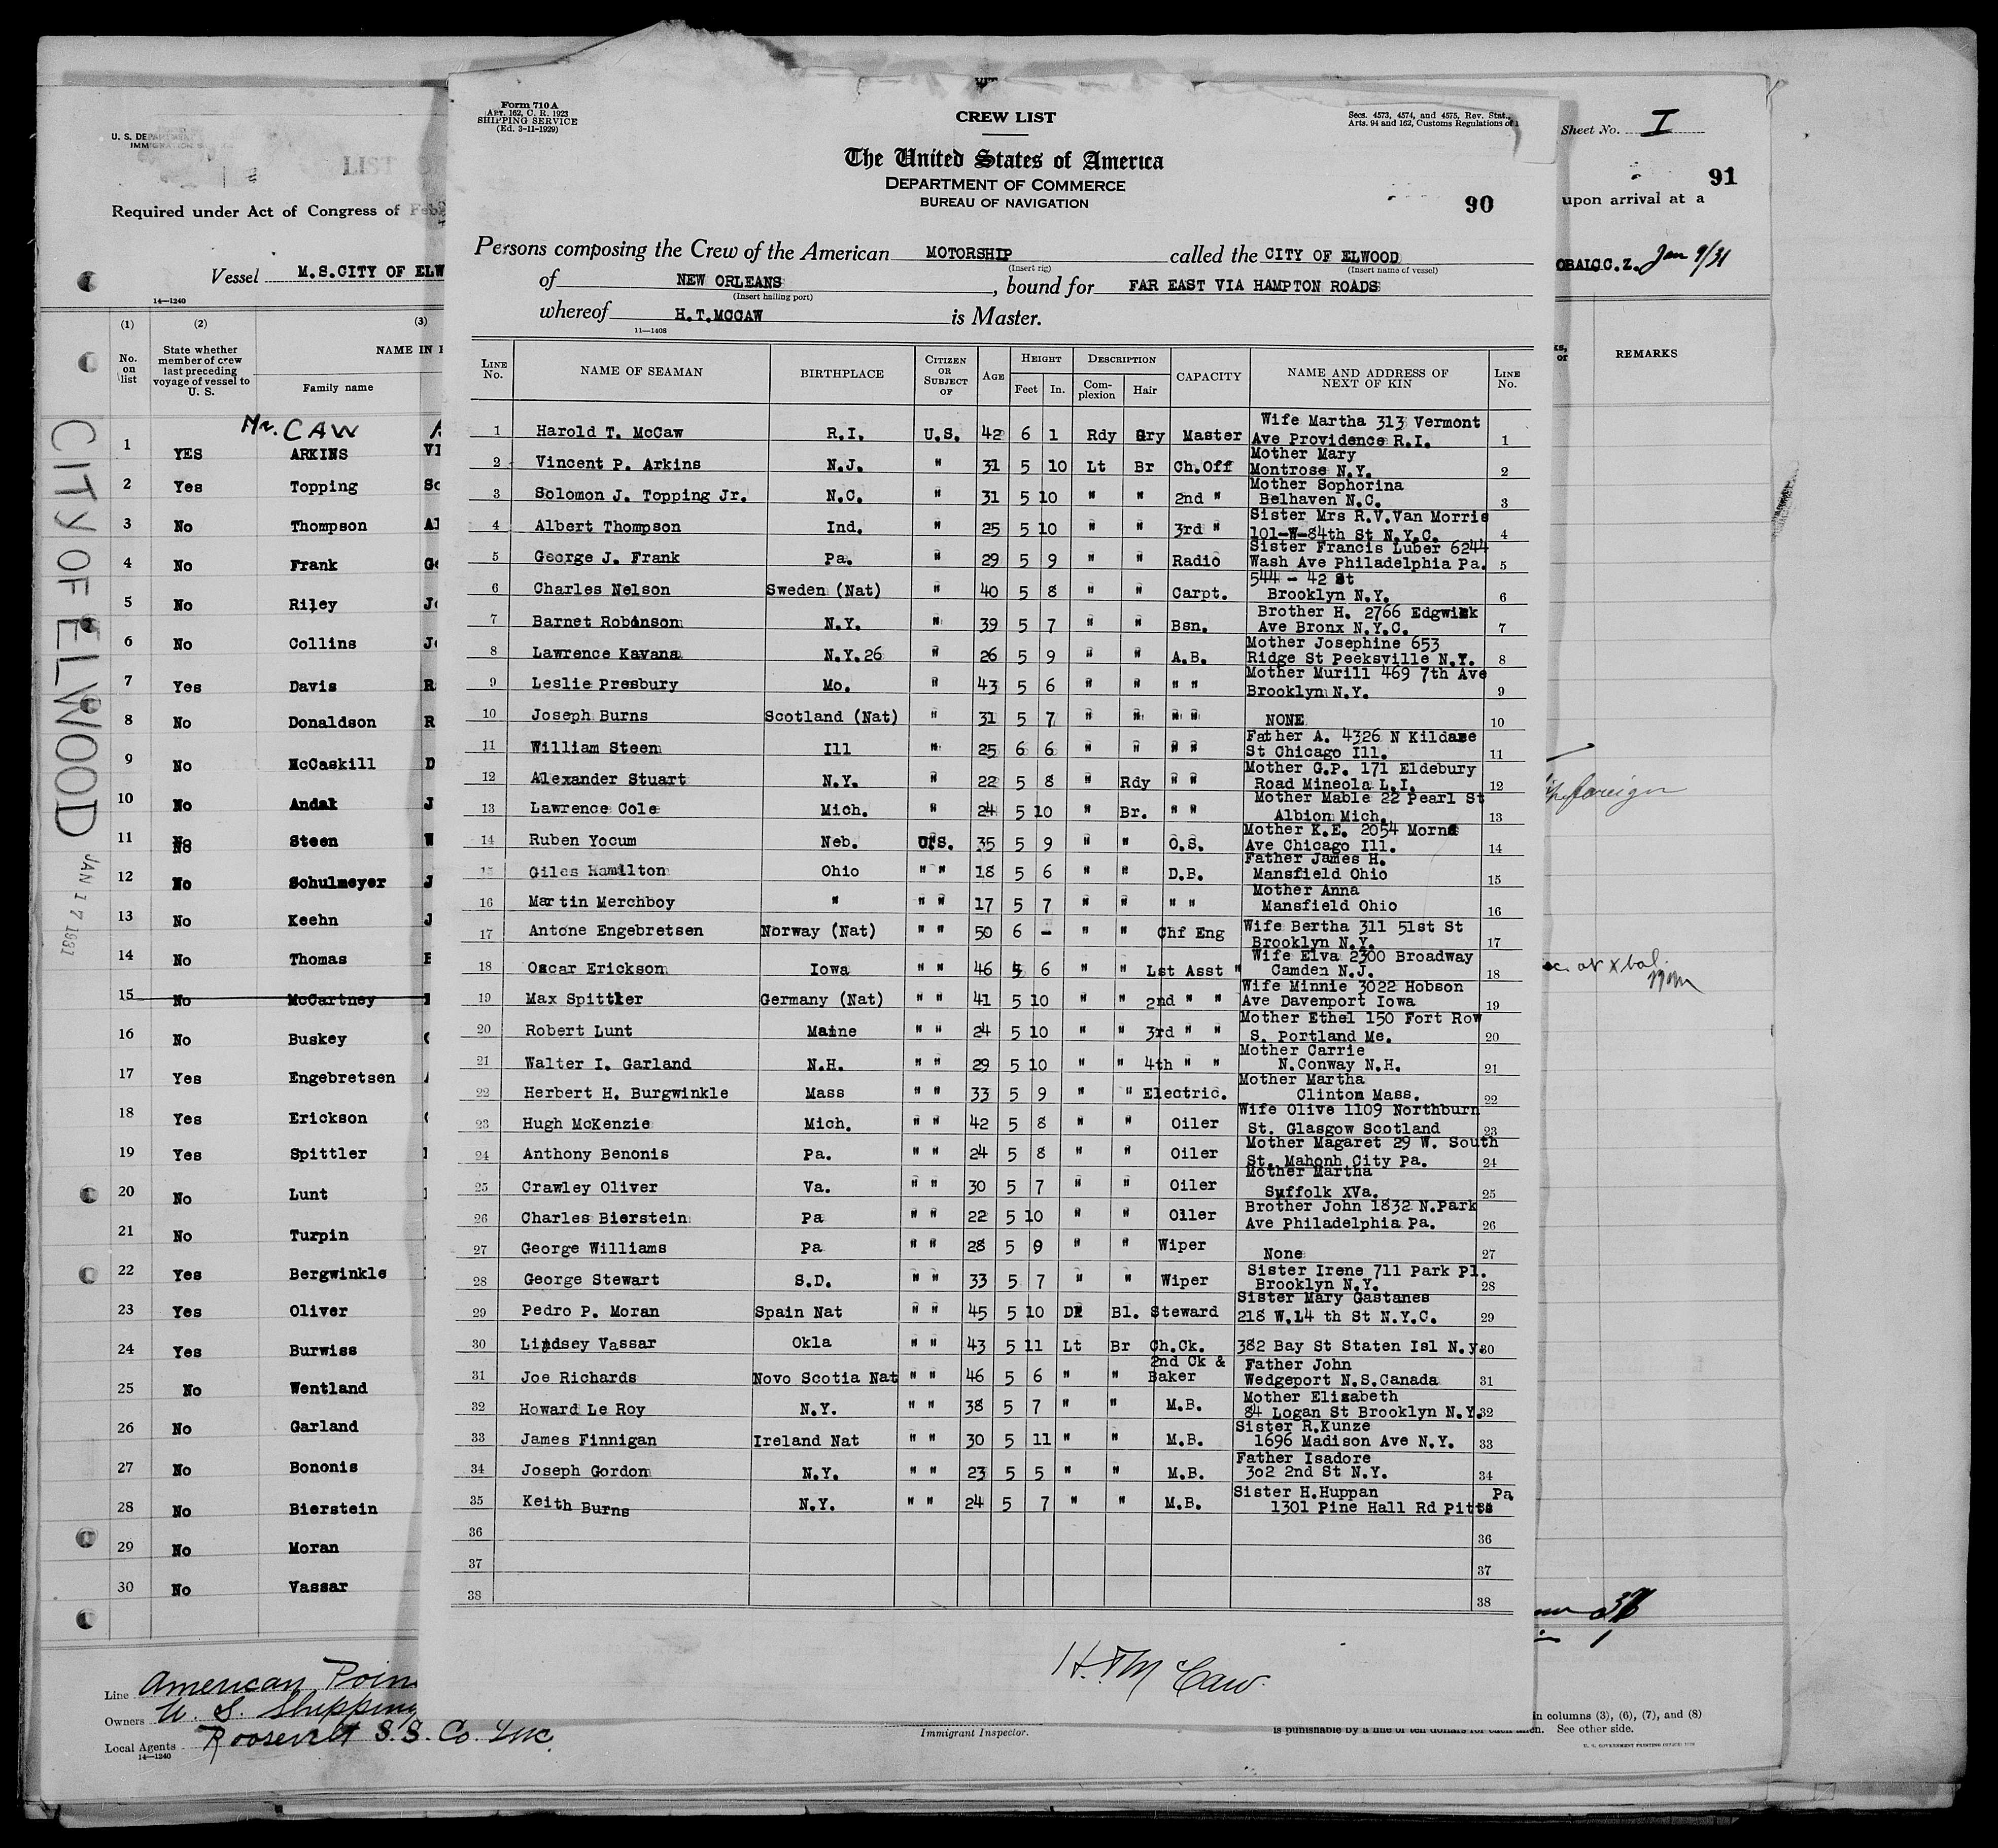 Form 710 A
Art. 162, C. R. 1923
SHIPPING SERVICE
(Ed. 3-11-1929)
CREW LIST
Secs. 4573, 4574, and 4575, Rev. Stat.,
Arts. 94 and 162, Customs Regulations of 1
The United States of America
DEPARTMENT OF COMMERCE
BUREAU OF NAVIGATION
90
Persons composing the Crew of the American MOTORSHIP called the CITY OF ELWOOD
(Insert rig) (Insert name of vessel)
of NEW ORLEANS, bound for FAR EAST VIA HAMPTON ROADS
(Insert hailing port)
whereof H.T.MCCAW is Master.
11—1408
LINE No. NAME OF SEAMAN BIRTHPLACE CITIZEN OR SUBJECT OF AGE HEIGHT Feet In. DESCRIPTION Complexion Hair CAPACITY NAME AND ADDRESS OF NEXT OF KIN LINE No.
1 Harold T. McCaw R.I. U.S. 42 6 1 Rdy Gry Master Wife Martha 313 Vermont Ave Providence R.I. 1
2 Vincent P. Arkins N.J. " 31 5 10 Lt Br Ch.Off Mother Mary Montrose N.Y. 2
3 Solomon J. Topping Jr. N.C. " 31 5 10 " " 2nd " Mother Sophorina Belhaven N.C. 3
4 Albert Thompson Ind. " 25 5 10 " " 3rd " Sister Mrs R.V.Van Morris 101-W-84th St N.Y.C. 4
5 George J. Frank Pa. " 29 5 9 " " Radio Sister Francis Luber 6244 Wash Ave Philadelphia Pa. 5
6 Charles Nelson Sweden (Nat) " 40 5 8 " " Carpt. 544 - 42 St Brooklyn N.Y. 6
7 Barnet Robinson N.Y. " 39 5 7 " " Bsn. Brother H. 2766 Edgwick Ave Bronx N.Y.C. 7
8 Lawrence Kavana N.Y. 26 " 26 5 9 " " A.B. Mother Josephine 653 Ridge St Peeksville N.Y. 8
9 Leslie Presbury Mo. " 43 5 6 " " " " Mother Murill 469 7th Ave Brooklyn N.Y. 9
10 Joseph Burns Scotland (Nat) " 31 5 7 " " " " NONE 10
11 William Steen Ill " 25 6 6 " " " " Father A. 4326 N Kildare St Chicago Ill. 11
12 Alexander Stuart N.Y. " 22 5 8 " Rdy " " Mother G.P. 171 Eldebury Road Mineola L.I. 12
13 Lawrence Cole Mich. " 24 5 10 " Br. " " Mother Mable 22 Pearl St Albion Mich. 13
14 Ruben Yocum Neb. U.S. 35 5 9 " " O.S. Mother K.E. 2054 Morna Ave Chicago Ill. 14
15 Giles Hamilton Ohio " " 18 5 6 " " D.B. Father James H. Mansfield Ohio 15
16 Martin Merchboy " " " 17 5 7 " " " " Mother Anna Mansfield Ohio 16
17 Antone Engebretsen Norway (Nat) " " 50 6 - " " Chf Eng Wife Bertha 311 51st St Brooklyn N.Y. 17
18 Oscar Erickson Iowa " " 46 5 6 " " 1st Asst " Wife Elva 2300 Broadway Camden N.J. 18
19 Max Spittler Germany (Nat) " " 41 5 10 " " 2nd " " Wife Minnie 3022 Hobson Ave Davenport Iowa 19
20 Robert Lunt Maine " " 24 5 10 " " 3rd " " Mother Ethel 150 Fort Row S. Portland Me. 20
21 Walter I. Garland N.H. " " 29 5 10 " " 4th " " Mother Carrie N.Conway N.H. 21
22 Herbert H. Burgwinkle Mass " " 33 5 9 " " Electric. Mother Martha Clinton Mass. 22
23 Hugh McKenzie Mich. " " 42 5 8 " " Oiler Wife Olive 1109 Northburn St. Glasgow Scotland 23
24 Anthony Benonis Pa. " " 24 5 8 " " Oiler Mother Magaret 29 W. South St. Mahonh City Pa. 24
25 Crawley Oliver Va. " " 30 5 7 " " Oiler Mother Martha Suffolk XVa. 25
26 Charles Bierstein Pa " " 22 5 10 " " Oiler Brother John 1832 N.Park Ave Philadelphia Pa. 26
27 George Williams Pa " " 28 5 9 " " Wiper None 27
28 George Stewart S.D. " " 33 5 7 " " Wiper Sister Irene 711 Park Pl. Brooklyn N.Y. 28
29 Pedro P. Moran Spain Nat " " 45 5 10 Dk Bl. Steward Sister Mary Gastanes 218 W.14 th St N.Y.C. 29
30 Lindsey Vassar Okla " " 43 5 11 Lt Br Ch.Ck. 382 Bay St Staten Isl N.y. 30
31 Joe Richards Novo Scotia Nat " " 46 5 6 " " 2nd Ck & Baker Father John Wedgeport N.S.Canada 31
32 Howard Le Roy N.Y. " " 38 5 7 " " M.B. Mother Elizabeth 84 Logan St Brooklyn N.Y. 32
33 James Finnigan Ireland Nat " " 30 5 11 " " M.B. Sister R.Kunze 1696 Madison Ave N.Y. 33
34 Joseph Gordon N.Y. " " 23 5 5 " " M.B. Father Isadore 302 2nd St N.Y. 34
35 Keith Burns N.Y. " " 24 5 7 " " M.B. Sister H.Huppan 1301 Pine Hall Rd Pitts Pa
36 36
37 37
38 38
H. T. McCaw.
U. S. DEPARTMENT
IMMIGRATION
LIST
Required under Act of Congress of Feb
Vessel M.S.CITY OF ELW
14—1240
(1) (2) (3)
No. on list State whether member of crew last preceding voyage of vessel to U. S. NAME IN
Family name
Mc. CAW
1 YES ARKINS VI
2 Yes Topping So
3 No Thompson Al
4 No Frank Ge
5 No Riley Jo
6 No Collins Jo
7 Yes Davis R
8 No Donaldson R
9 No McCaskill D
10 No Andak J
11 No Steen W
12 No Schulmeyer J
13 No Keehn J
14 No Thomas
15 No McCartney
16 No Buskey
17 Yes Engebretsen
18 Yes Erickson
19 Yes Spittler
20 No Lunt
21 No Turpin
22 Yes Bergwinkle
23 Yes Oliver
24 Yes Burwiss
25 No Wentland
26 No Garland
27 No Bononis
28 No Bierstein
29 No Moran
30 No Vassar
CITY OF ELWOOD
JAN 17 1931
Line American Poin
Owners U. S. Shipping
Local Agents Roosevelt S.S. Co. Inc.
14—1240
Immigrant Inspector.
Sheet No. I
91
upon arrival at a
OBALC.C.Z. Jan 9/31
REMARKS
foreign
36
1
in columns (3), (6), (7), and (8)
is punishable by a fine of ten dollars for each alien. See other side.
U. S. GOVERNMENT PRINTING OFFICE